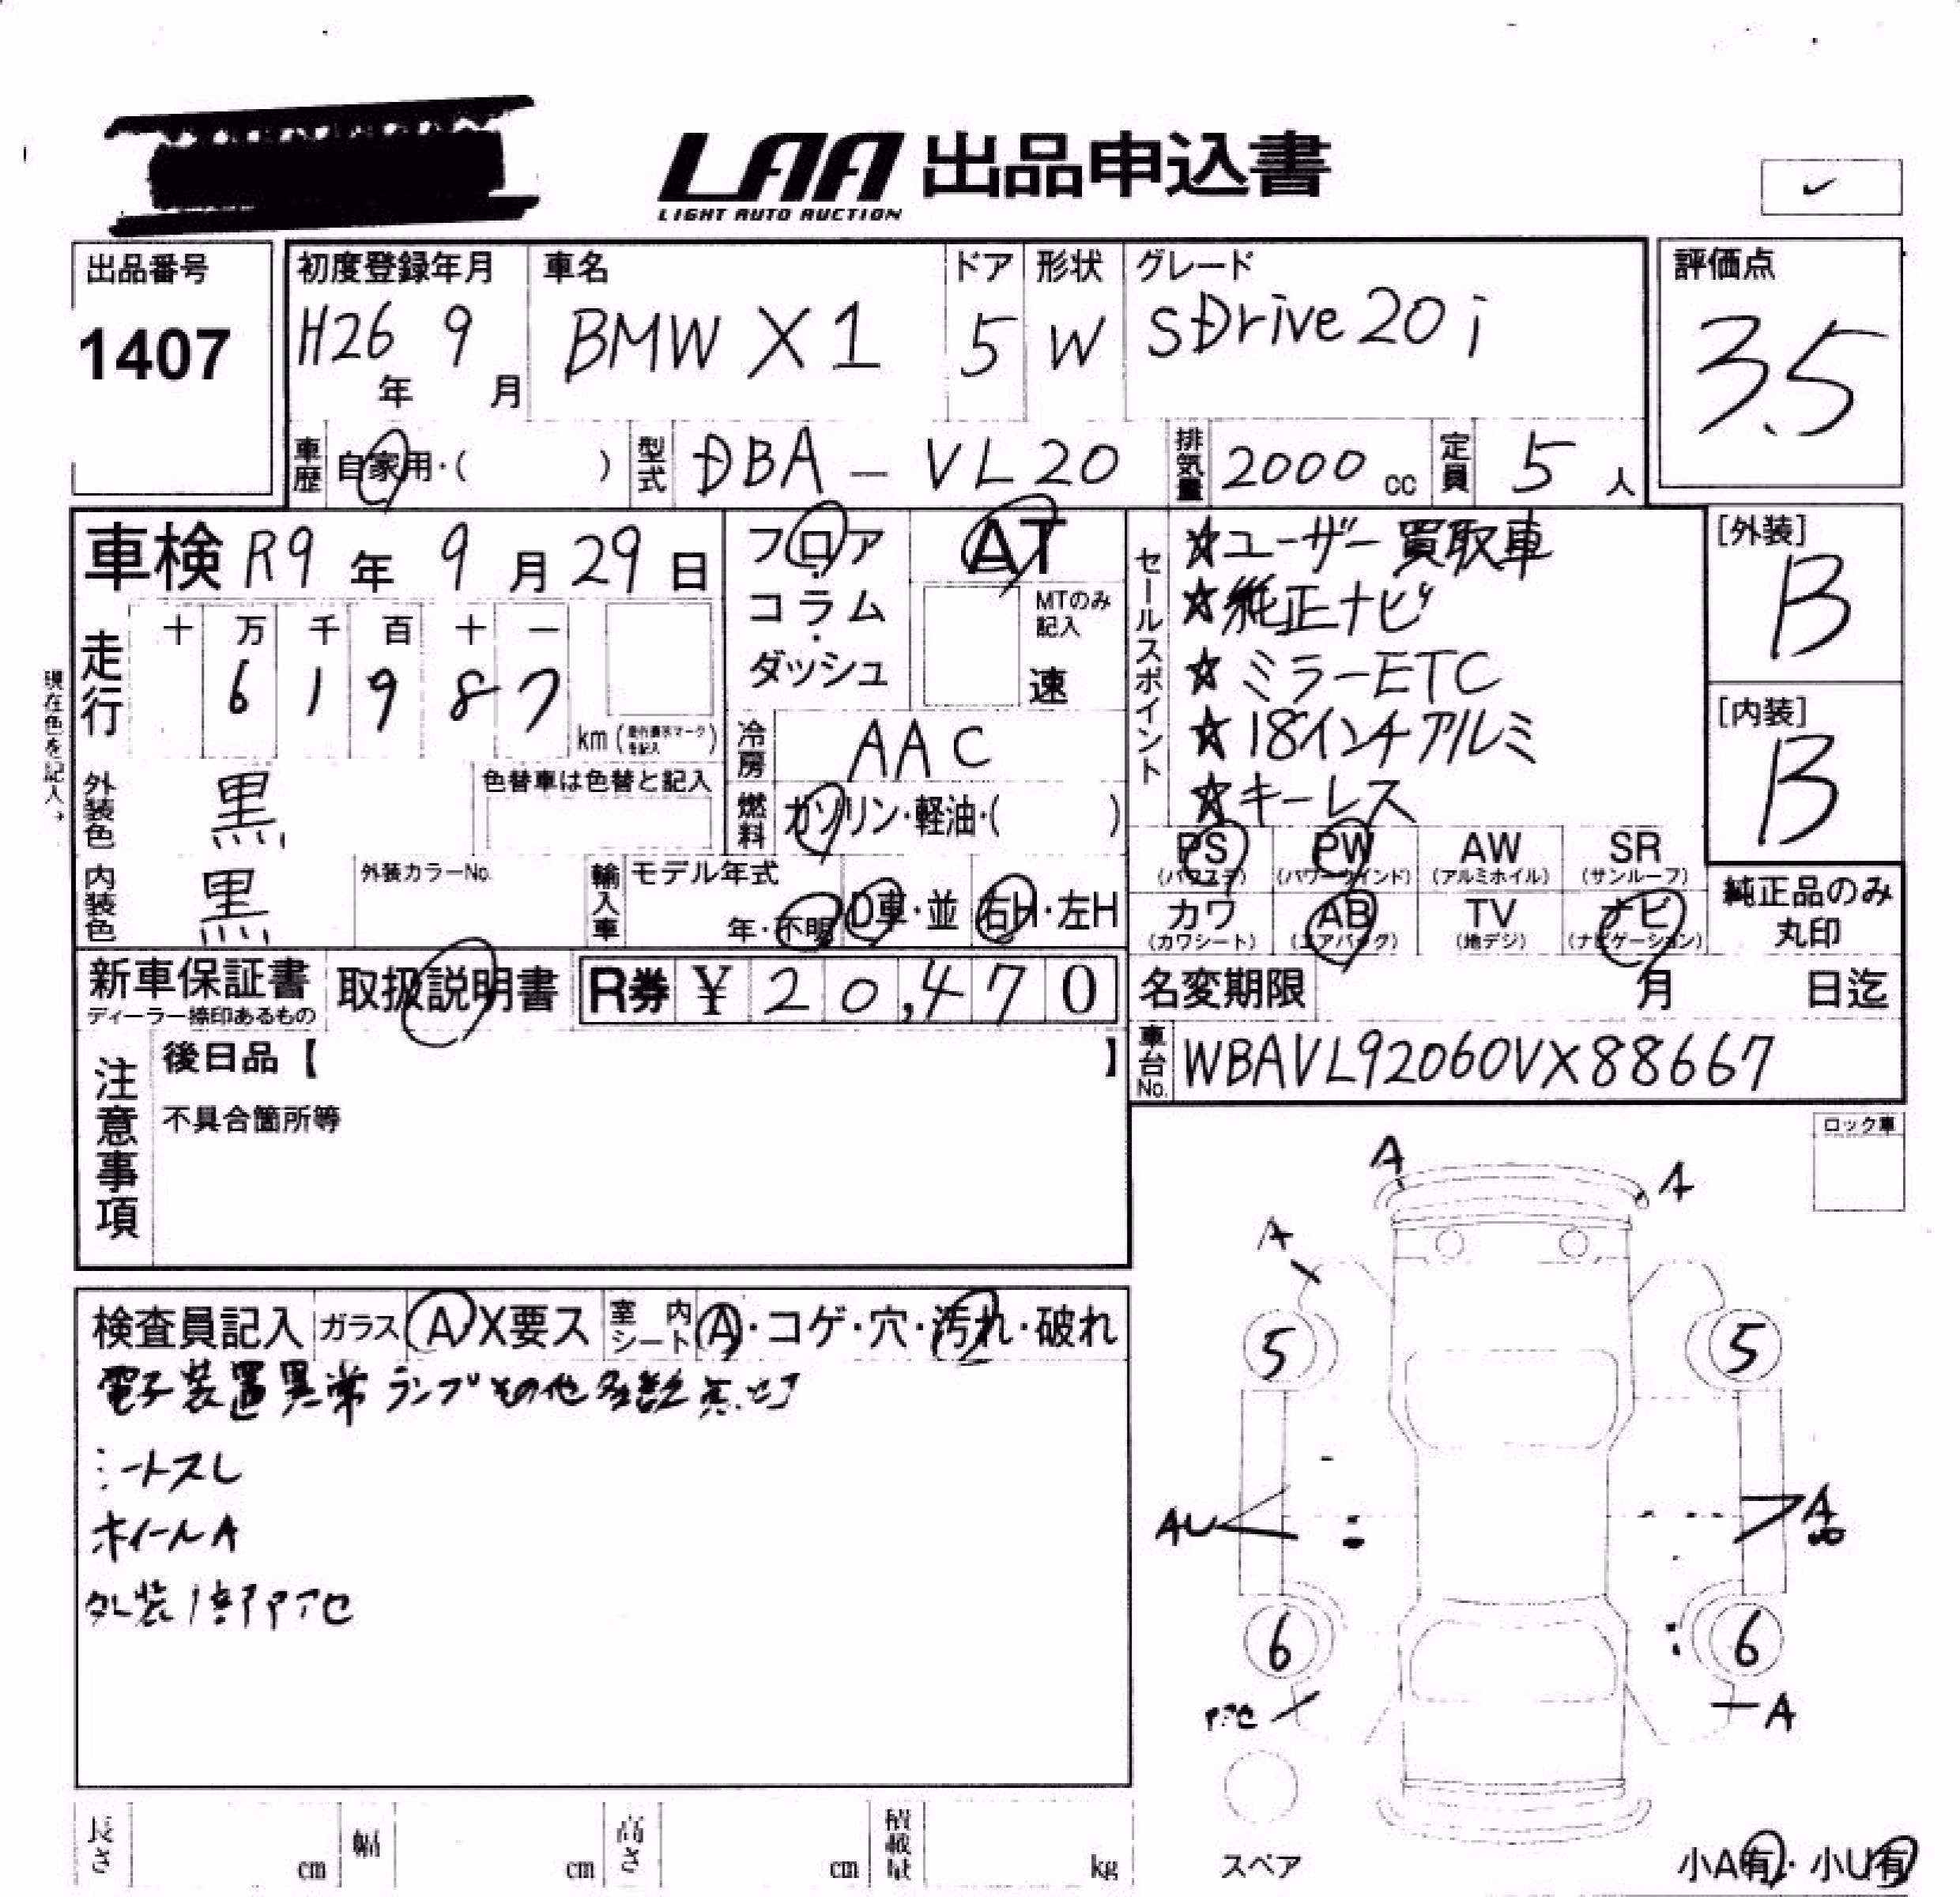 LAA 出品申込書
LIGHT AUTO AUCTION
出品番号
1407
初度登録年月
H26年 9月
車名
BMW X1
ドア
5
形状
W
グレード
SDrive20i
評価点
3.5
車歴 自家用・( )
型式 DBA-VL20
排気量 2000cc
定員 5人
車検 R9年 9月 29日
走行
十 万 千 百 十 一
6 1 9 8 7
km
現在色を記入→
外装色 黒
色替車は色替と記入
内装色 黒
外装カラーNo.
フロア・コラム・ダッシュ
AT
MTのみ記入
速
冷房 AAC
燃料 ガソリン・軽油・( )
輸入車 モデル年式
年・不明 D車・並 右H・左H
セールスポイント
☆ユーザー買取車
☆純正ナビ
☆ミラーETC
☆18インチアルミ
☆キーレス
PS (パワステ)
PW (パワーウインド)
AW (アルミホイル)
SR (サンルーフ)
カワ (カワシート)
AB (エアバッグ)
TV (地デジ)
ナビ (ナビゲーション)
[外装]
B
[内装]
B
純正品のみ
丸印
新車保証書
ディーラー捺印あるもの
取扱説明書
R券 ¥20,470
名変期限 月 日迄
車台No. WBAVL92060VX88667
注意事項
後日品【 】
不具合箇所等
ロック車
検査員記入 ガラス A X要ス 室内シート A・コゲ・穴・汚れ・破れ
電子装置異常ランプその他多数点灯
シートスレ
ホイールA
外装1部アアセ
A
A
A
5
5
AU
A
6
6
アアセ
A
スペア
小A有・小U有
長さ cm
幅 cm
高さ cm
積載量 kg